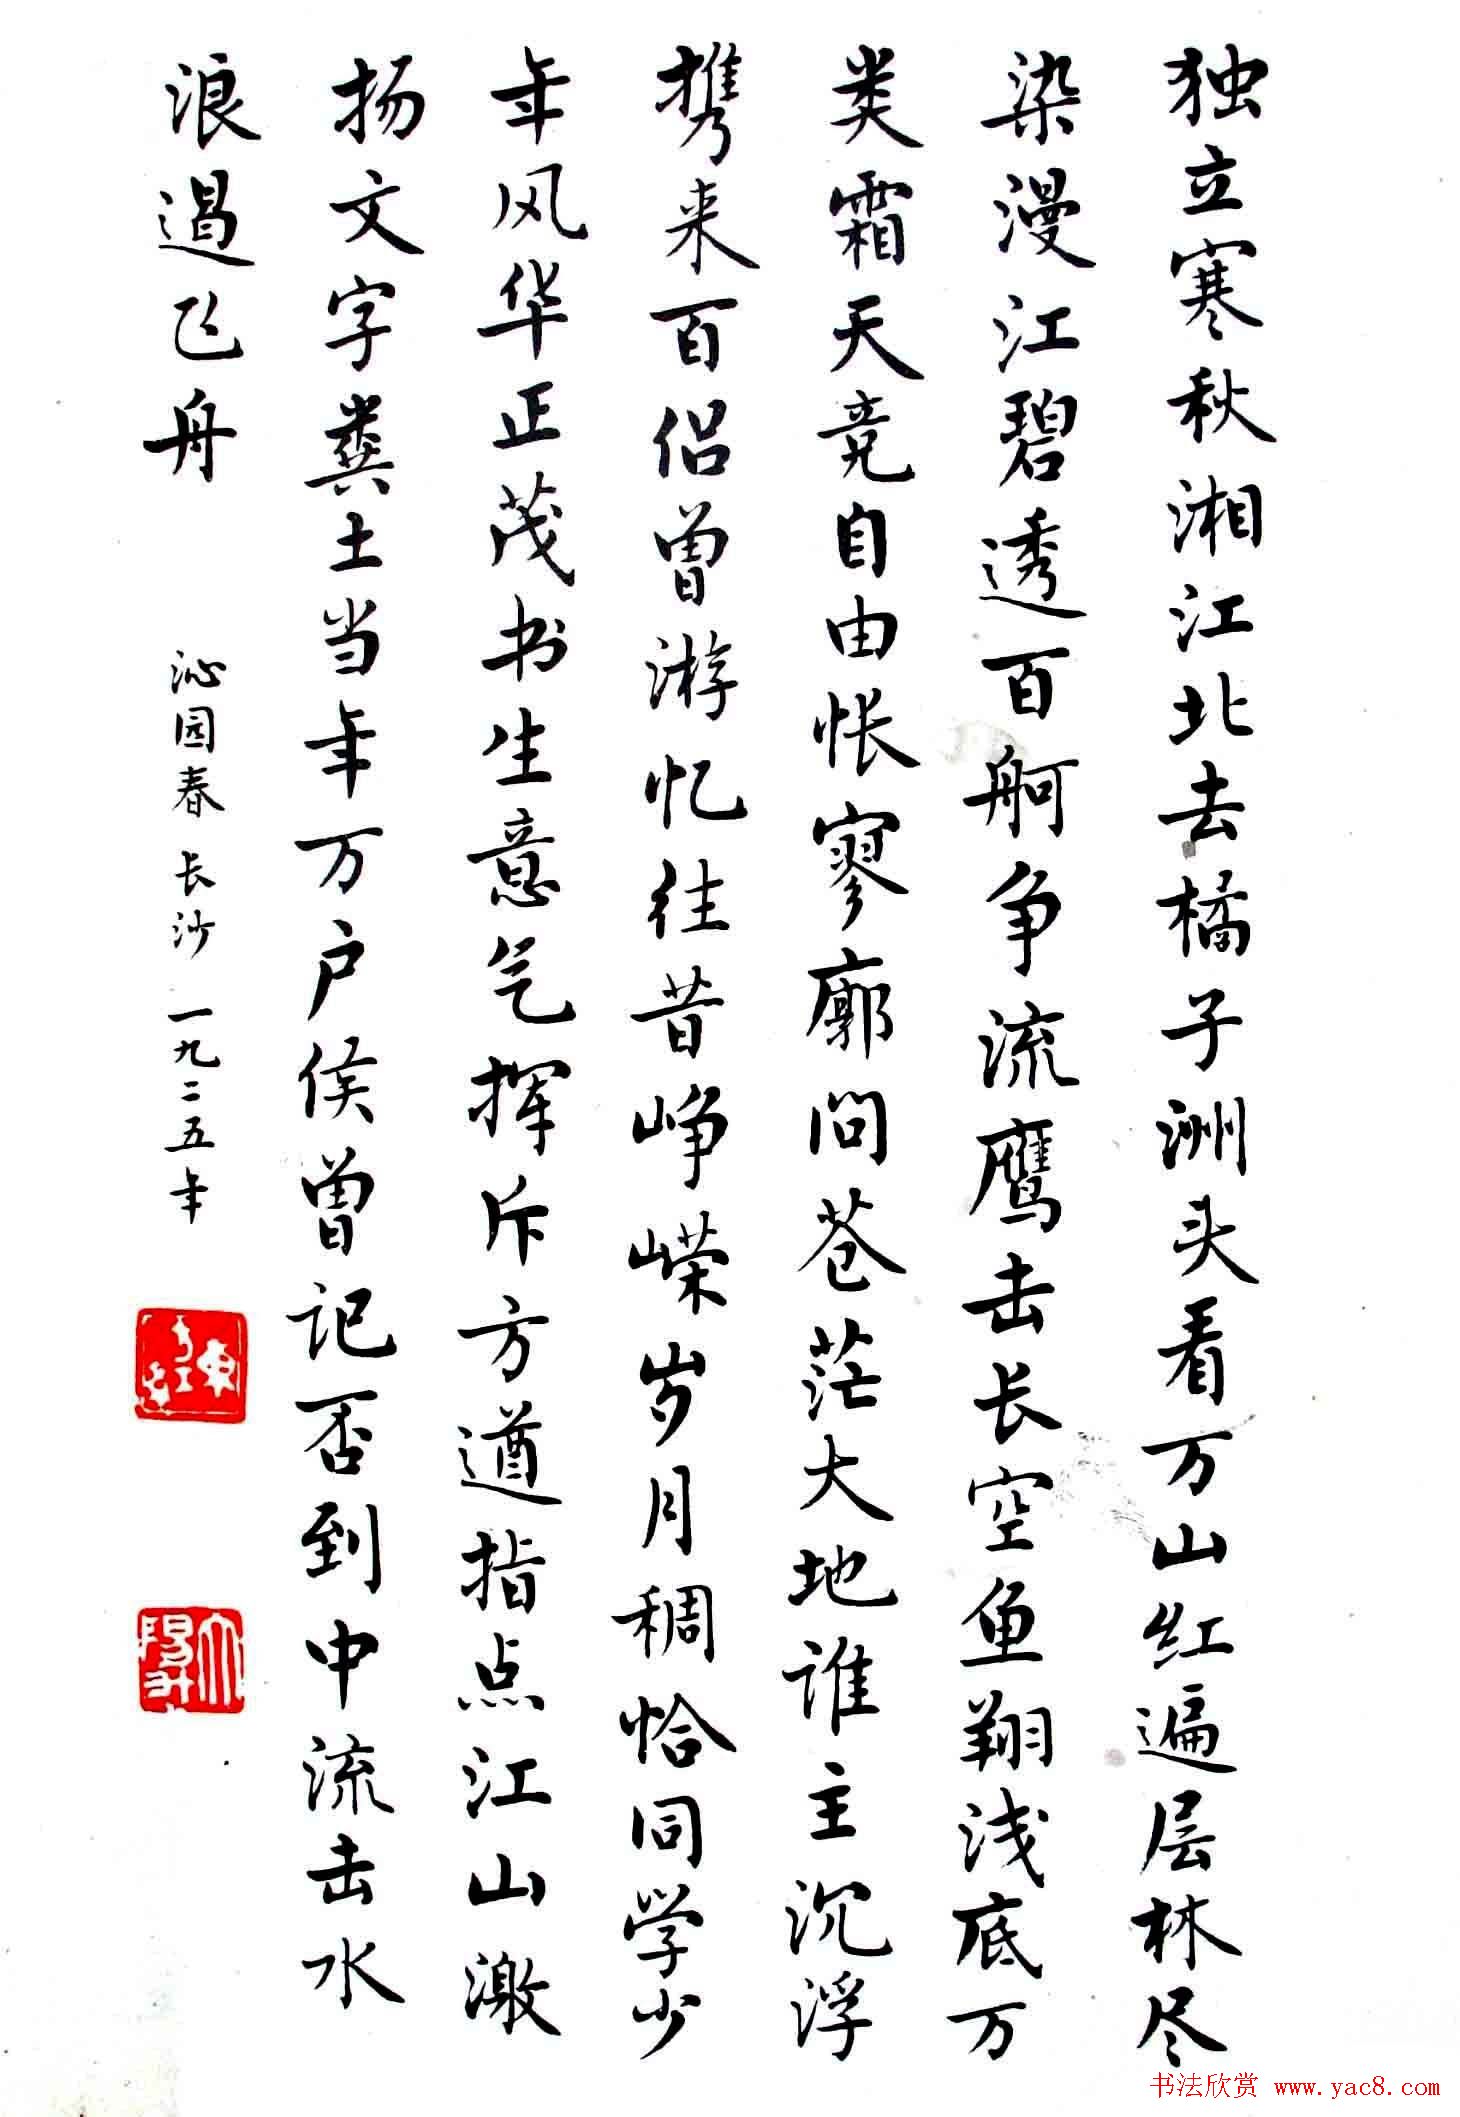 独立寒秋湘江北去橘子洲头看万山红遍层林尽
染漫江碧透百舸争流鹰击长空鱼翔浅底万
类霜天竞自由怅寥廓问苍茫大地谁主沉浮
携来百侣曾游忆往昔峥嵘岁月稠恰同学少
年风华正茂书生意气挥斥方遒指点江山激
扬文字粪土当年万户侯曾记否到中流击水
浪遏飞舟
沁园春 长沙 一九二五年
书法欣赏 www.yac8.com